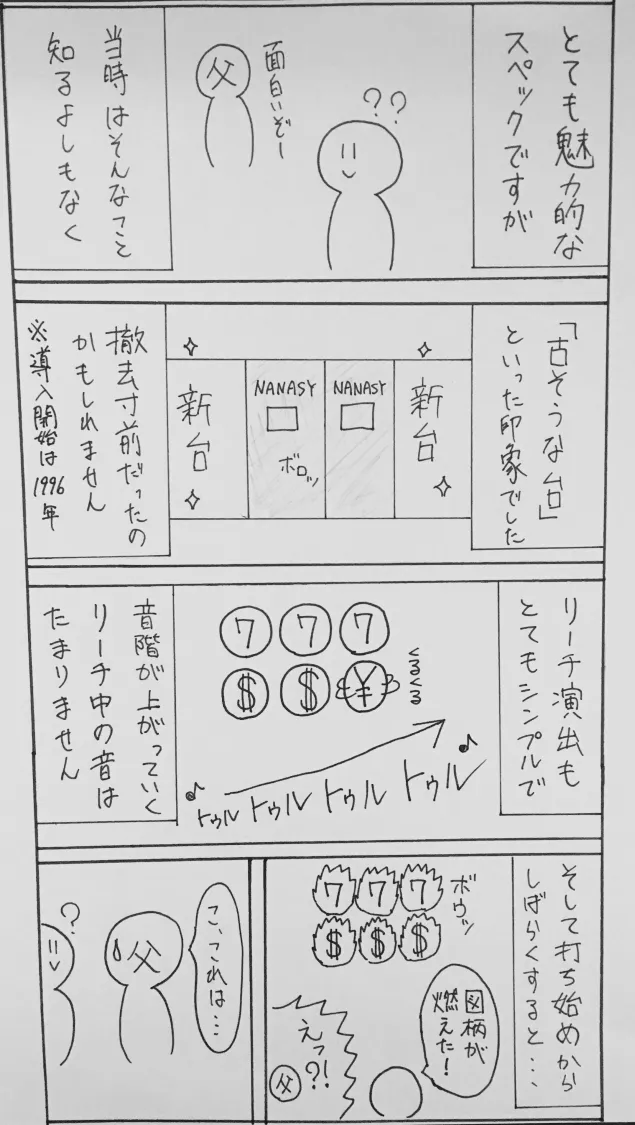 とても魅力的な
スペックですが
??
面白いぞー
父
当時はそんなこと
知るよしもなく
「古そうな台」
といった印象でした
新台
NANASY
NANASY
ボロッ
新台
撤去寸前だったの
かもしれません
※導入開始は1996年
リーチ演出も
とてもシンプルで
7 7 7
$ $ ¥
くるくる
♪トゥルトゥルトゥルトゥル♪
音階が上がっていく
リーチ中の音は
たまりません
そして打ち始めから
しばらくすると…
ボウッ
7 7 7
$ $ $
図柄が
燃えた!
えっ?!
父
こ、これは…
父
?